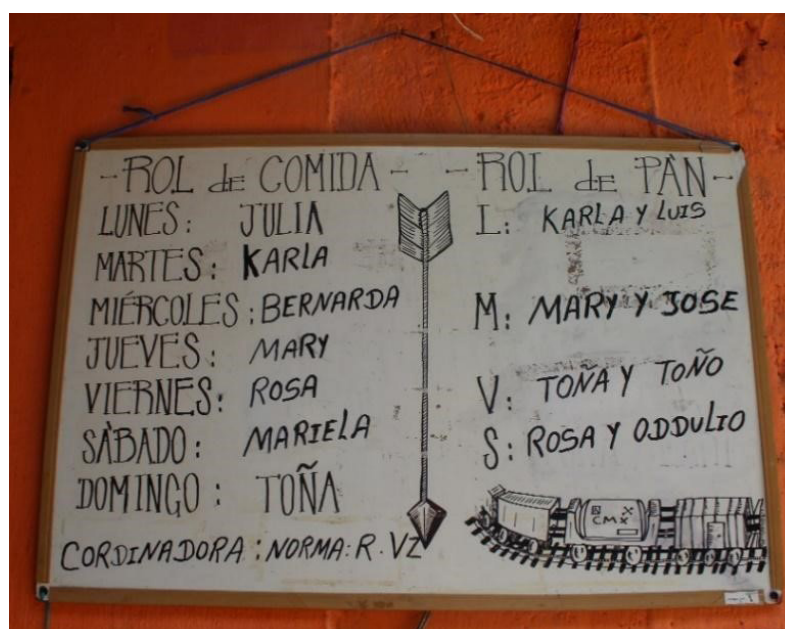 - ROL de COMIDA -
LUNES: JULIA
MARTES: KARLA
MIÉRCOLES: BERNARDA
JUEVES: MARY
VIERNES: ROSA
SÁBADO: MARIELA
DOMINGO: TOÑA
CORDINADORA: NORMA: R. VZ
- ROL de PÀN -
L: KARLA Y LUIS
M: MARY Y JOSE
V: TOÑA Y TOÑO
S: ROSA Y ODDULIO
CMX